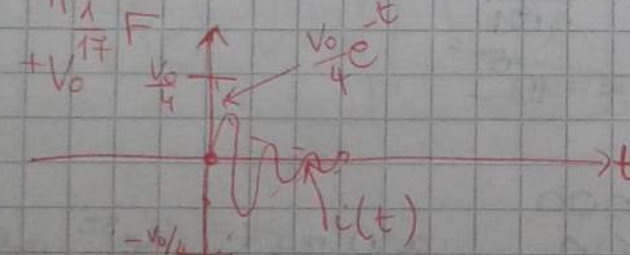 1/17 F
+V₀
V₀/4
V₀/4 e^-t
t
i(t)
-V₀/4